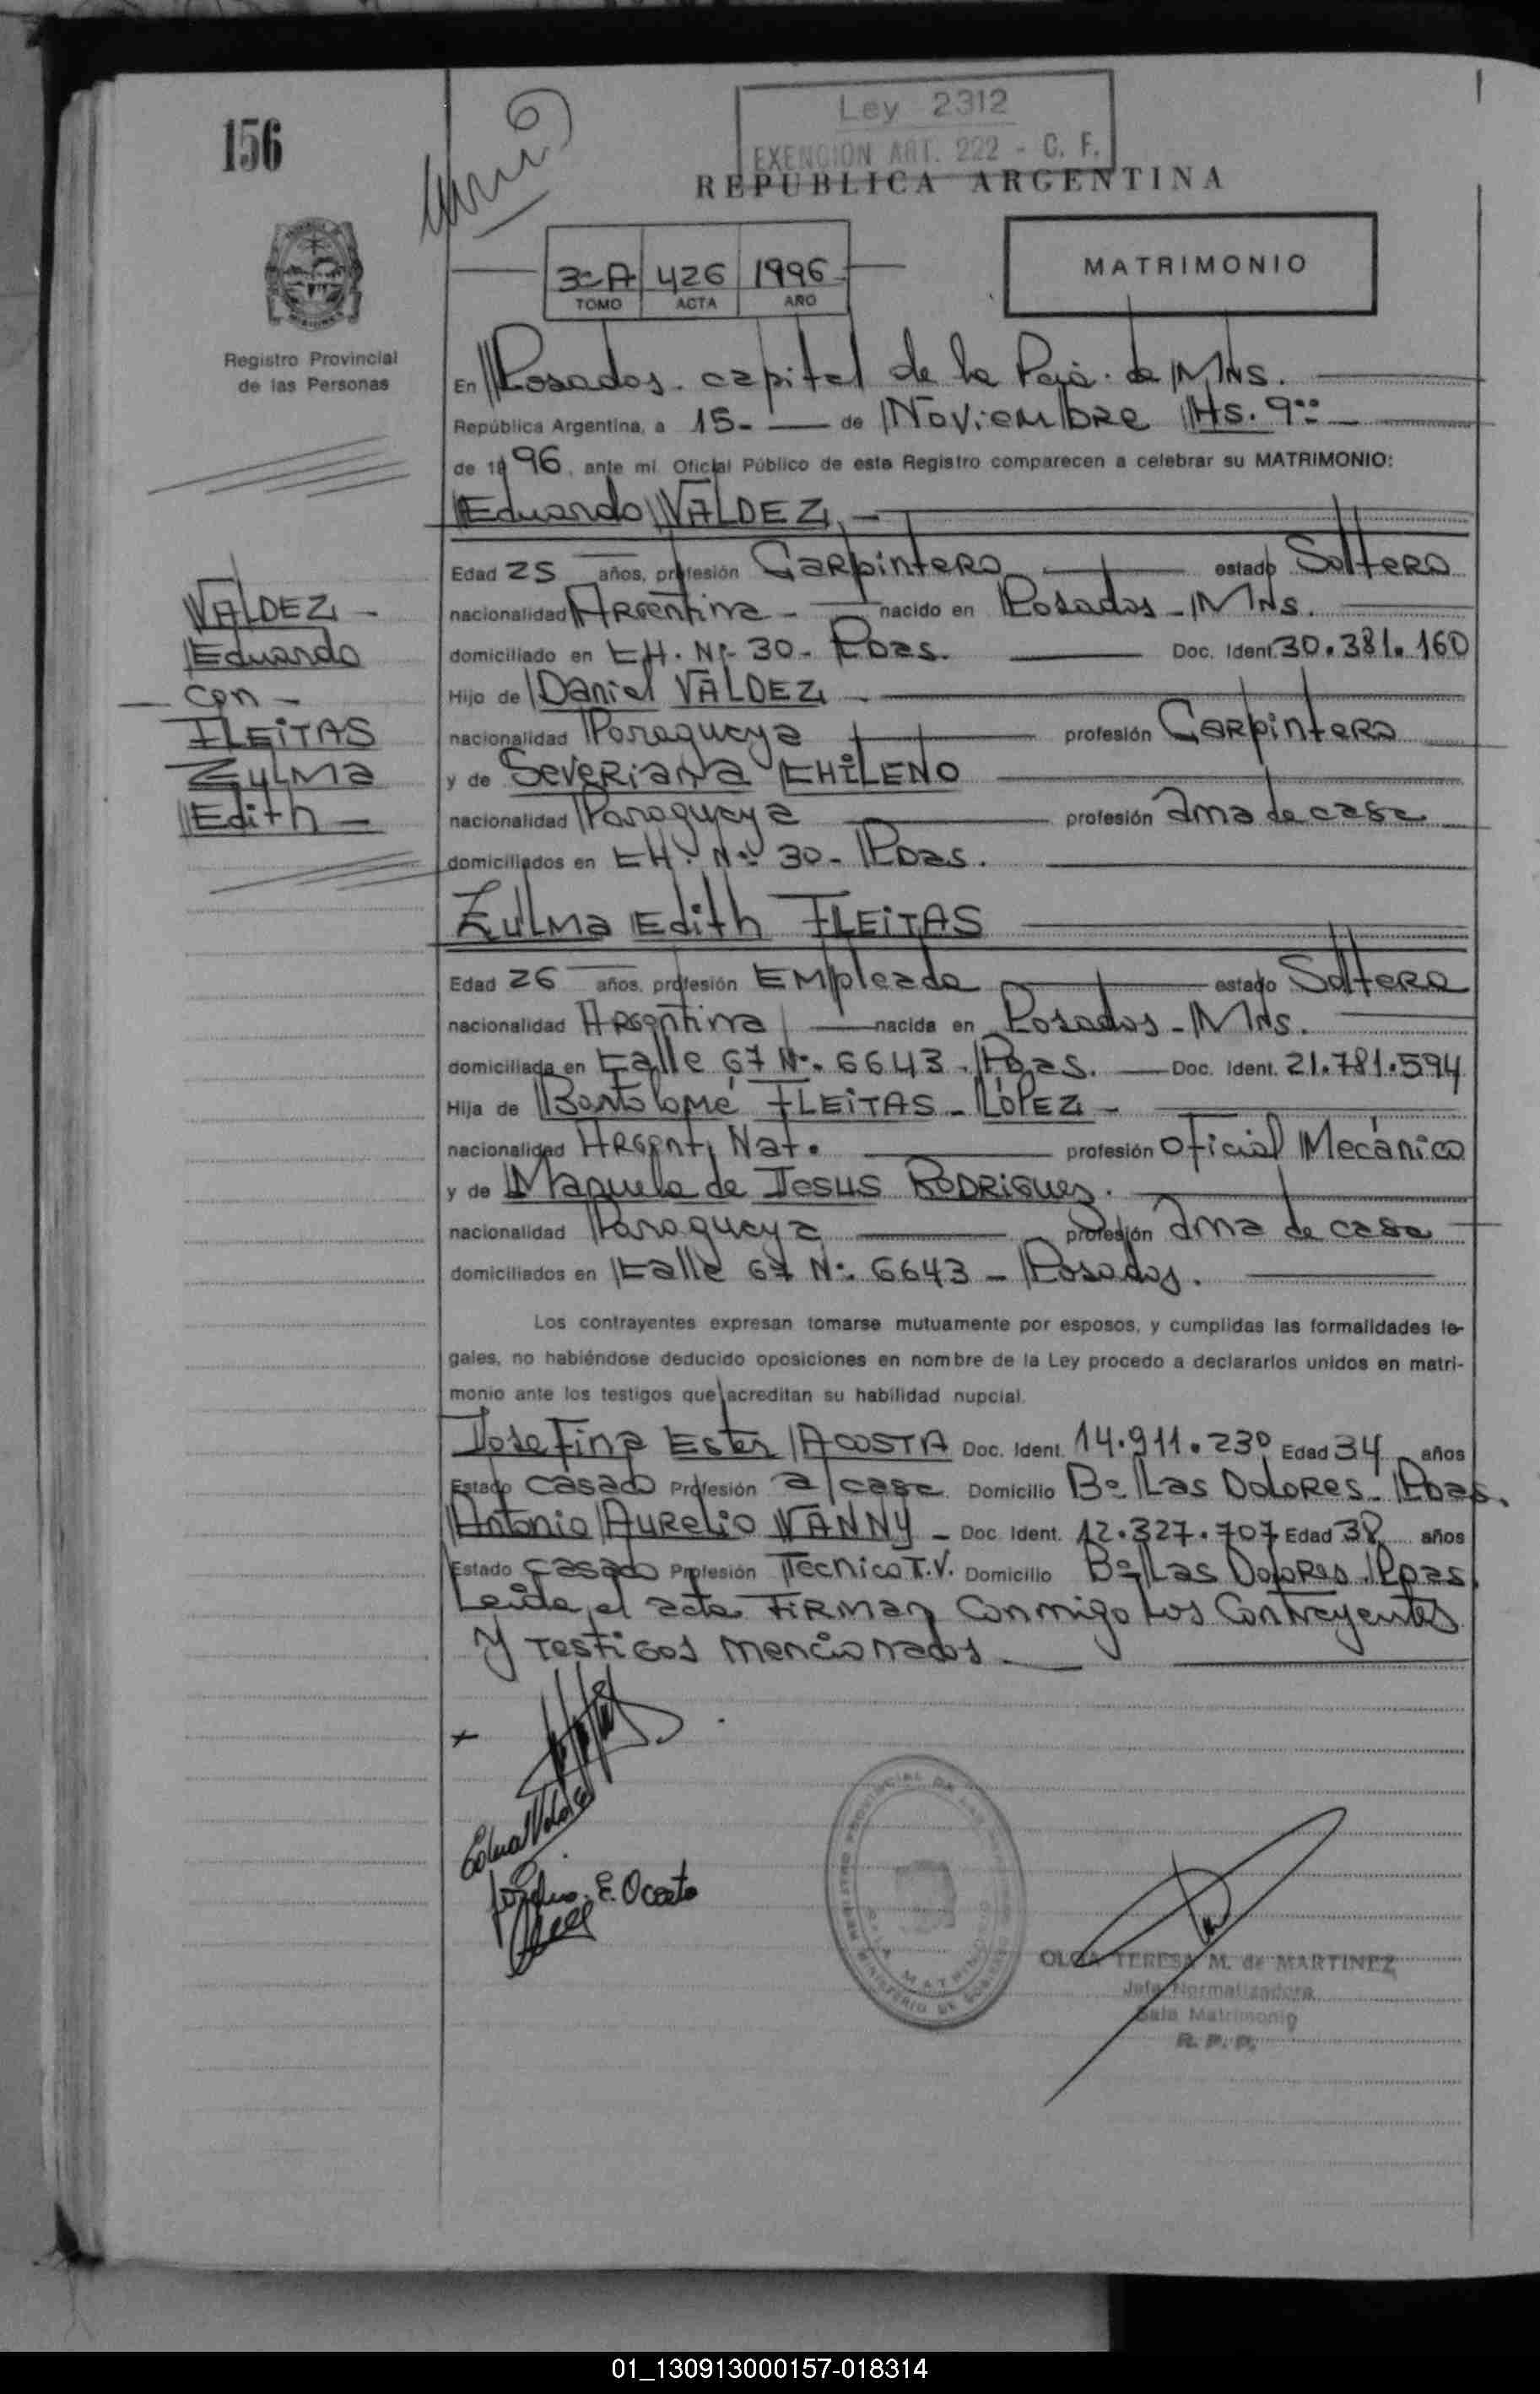 156
Ley 2312
EXENCION ART. 222 - C. F.
REPUBLICA ARGENTINA
3º A 426 1996
TOMO ACTA AÑO
MATRIMONIO
Registro Provincial
de las Personas
En Posadas. capital de la Pcia. de Mns.
República Argentina, a 15- de Noviembre Hs. 9:00
de 1996, ante mi Oficial Público de este Registro comparecen a celebrar su MATRIMONIO:
Eduardo VALDEZ -
Edad 25 años, profesión Carpintero estado Soltero
nacionalidad Argentina - nacido en Posadas - Mns.
domiciliado en CH. Nº 30 - Pdas. Doc. Ident. 30.381.160
Hijo de Daniel VALDEZ
nacionalidad Paraguaya profesión Carpintero
y de Severiana CHILENO
nacionalidad Paraguaya profesión ama de casa
domiciliados en CH. Nº 30 - Pdas.
VALDEZ -
Eduardo
- con -
FLEITAS
Zulma
Edith -
Zulma Edith FLEITAS
Edad 26 años, profesión Empleada estado Soltera
nacionalidad Argentina nacida en Posadas - Mns.
domiciliada en Calle 67 Nº 6643. Pdas. Doc. Ident. 21.781.594
Hija de Bartolomé FLEITAS - LÓPEZ -
nacionalidad Argent. Nat. profesión Oficial Mecánico
y de Manuela de Jesus RODRIGUEZ.
nacionalidad Paraguaya profesión ama de casa
domiciliados en Calle 67 Nº 6643 - Posadas.
Los contrayentes expresan tomarse mutuamente por esposos, y cumplidas las formalidades le-
gales, no habiéndose deducido oposiciones en nombre de la Ley procedo a declararlos unidos en matri-
monio ante los testigos que acreditan su habilidad nupcial.
Josefina Ester ACOSTA Doc. Ident. 14.911.230 Edad 34 años
Estado Casado Profesión a/casa Domicilio Bº Las Dolores - Pdas.
Antonio Aurelio VANNY - Doc. Ident. 12.327.707 Edad 38 años
Estado Casado Profesión Tecnico T.V. Domicilio Bº Las Dolores. Pdas.
Leida el acta Firman conmigo los Contrayentes
y testigos mencionados.
OLGA TERESA M. de MARTINEZ
Jefa Normalizadora
Sala Matrimonio
R. P. P.
01_130913000157-018314